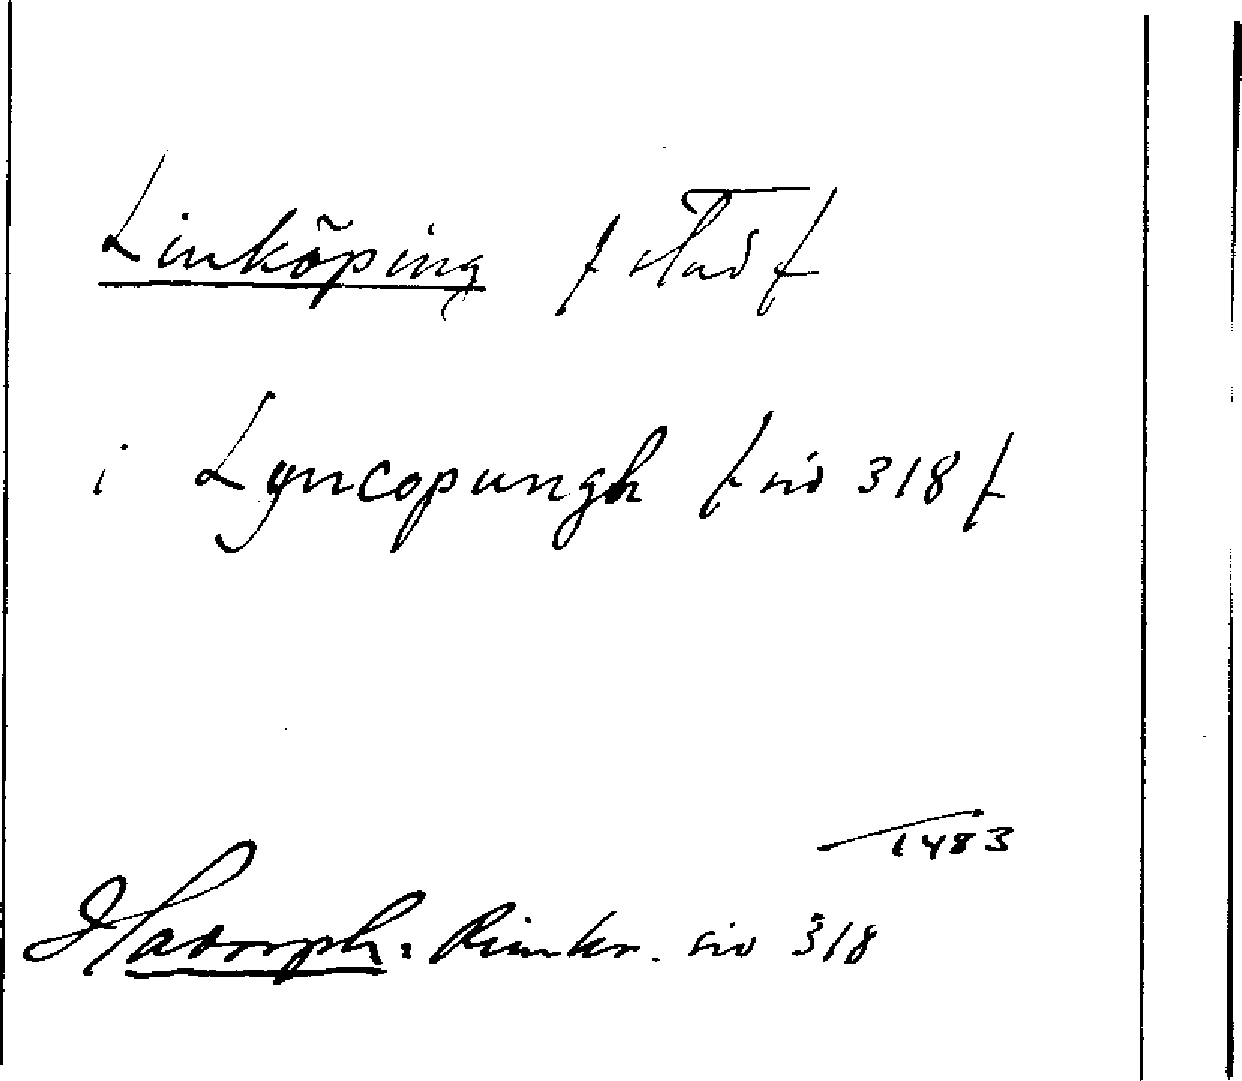 Linköping / stad /
i Lyncopungh / sid 318 /
1483
Hadorph: Rimkr. sid 318